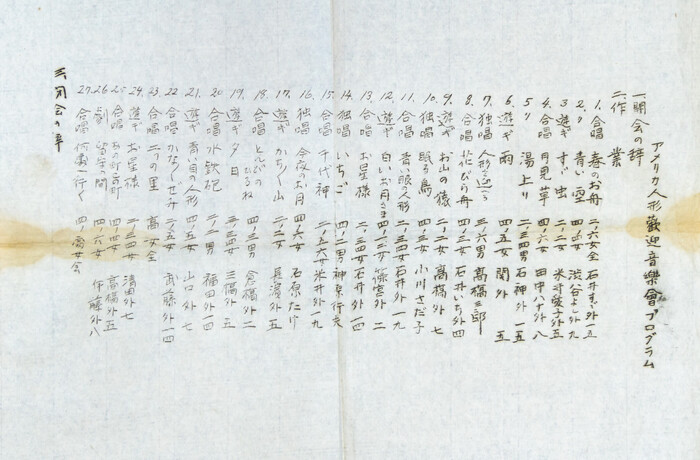 アメリカ人形歓迎音楽會プログラム
一、開会の辞
二、作業
1. 合唱 春のお舟 二、六女全 石井すゞ外一五
2. 〃 青い空 四、五女 渋谷よし外九
3. 遊ギ すゞ虫 二、四女 米井 外五
4. 合唱 月見草 四、六女 田中ハナ外八
5. 〃 湯上り 二、四男 石神外一五
6. 遊ギ 雨 四、五女 関外五
7. 独唱 人形を迎へる 三、六男 高橋三郎
8. 合唱 花びら舟 四、三女 石井いち外四
9. 遊ギ お山の猿 二、二女 高橋外七
10. 独唱 眠る鳥 四、四女 小川さだ子
11. 合唱 青い眼の人形 二、三女 石井外一九
12. 合唱 白いお月さま 四、一女 篠塚外二
13. 合唱 お星様 二、三女 石井外四
14. 独唱 いちご 四、二男 神原行夫
15. 合唱 千代神 二、五六女 米井外一九
16. 独唱 今夜のお月 四、六女 石原たけ
17. 遊ギ かち〱山 二、二女 長濱外五
18. 合唱 とんびのひるね 四、三男 倉橋外二
19. 遊ギ 夕日 三、三四女 三隅外五
20. 合唱 水鉄砲 四、二男 福田外一四
21. 遊ギ 青い目の人形 四、五女 山口外七
22. 合唱 かな〱ぜみ 二、五女 武藤外一四
23. 合唱 二つの里 高女全
24. 遊ギ お星様 二、四女 清田外七
25. 合唱 あの町この町 四、四女 高橋外五
26. 劇 留守の間 四、六女 伊藤外八
27. 合唱 何処へ行く 四、高女会
三、閉会の辞